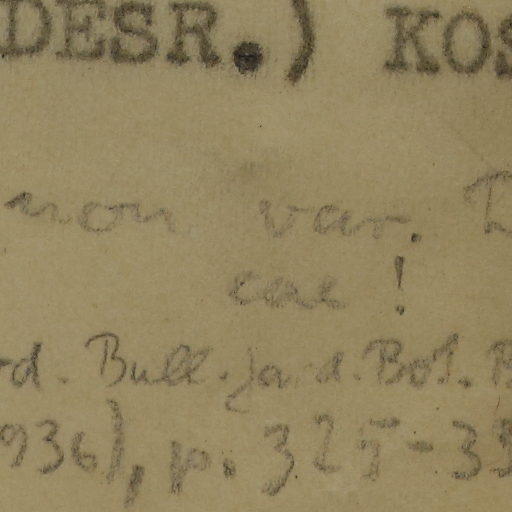 DESR.) KOS
non var.
cae!
rd. Bull. Jard. Bot. B
936), p. 325-33